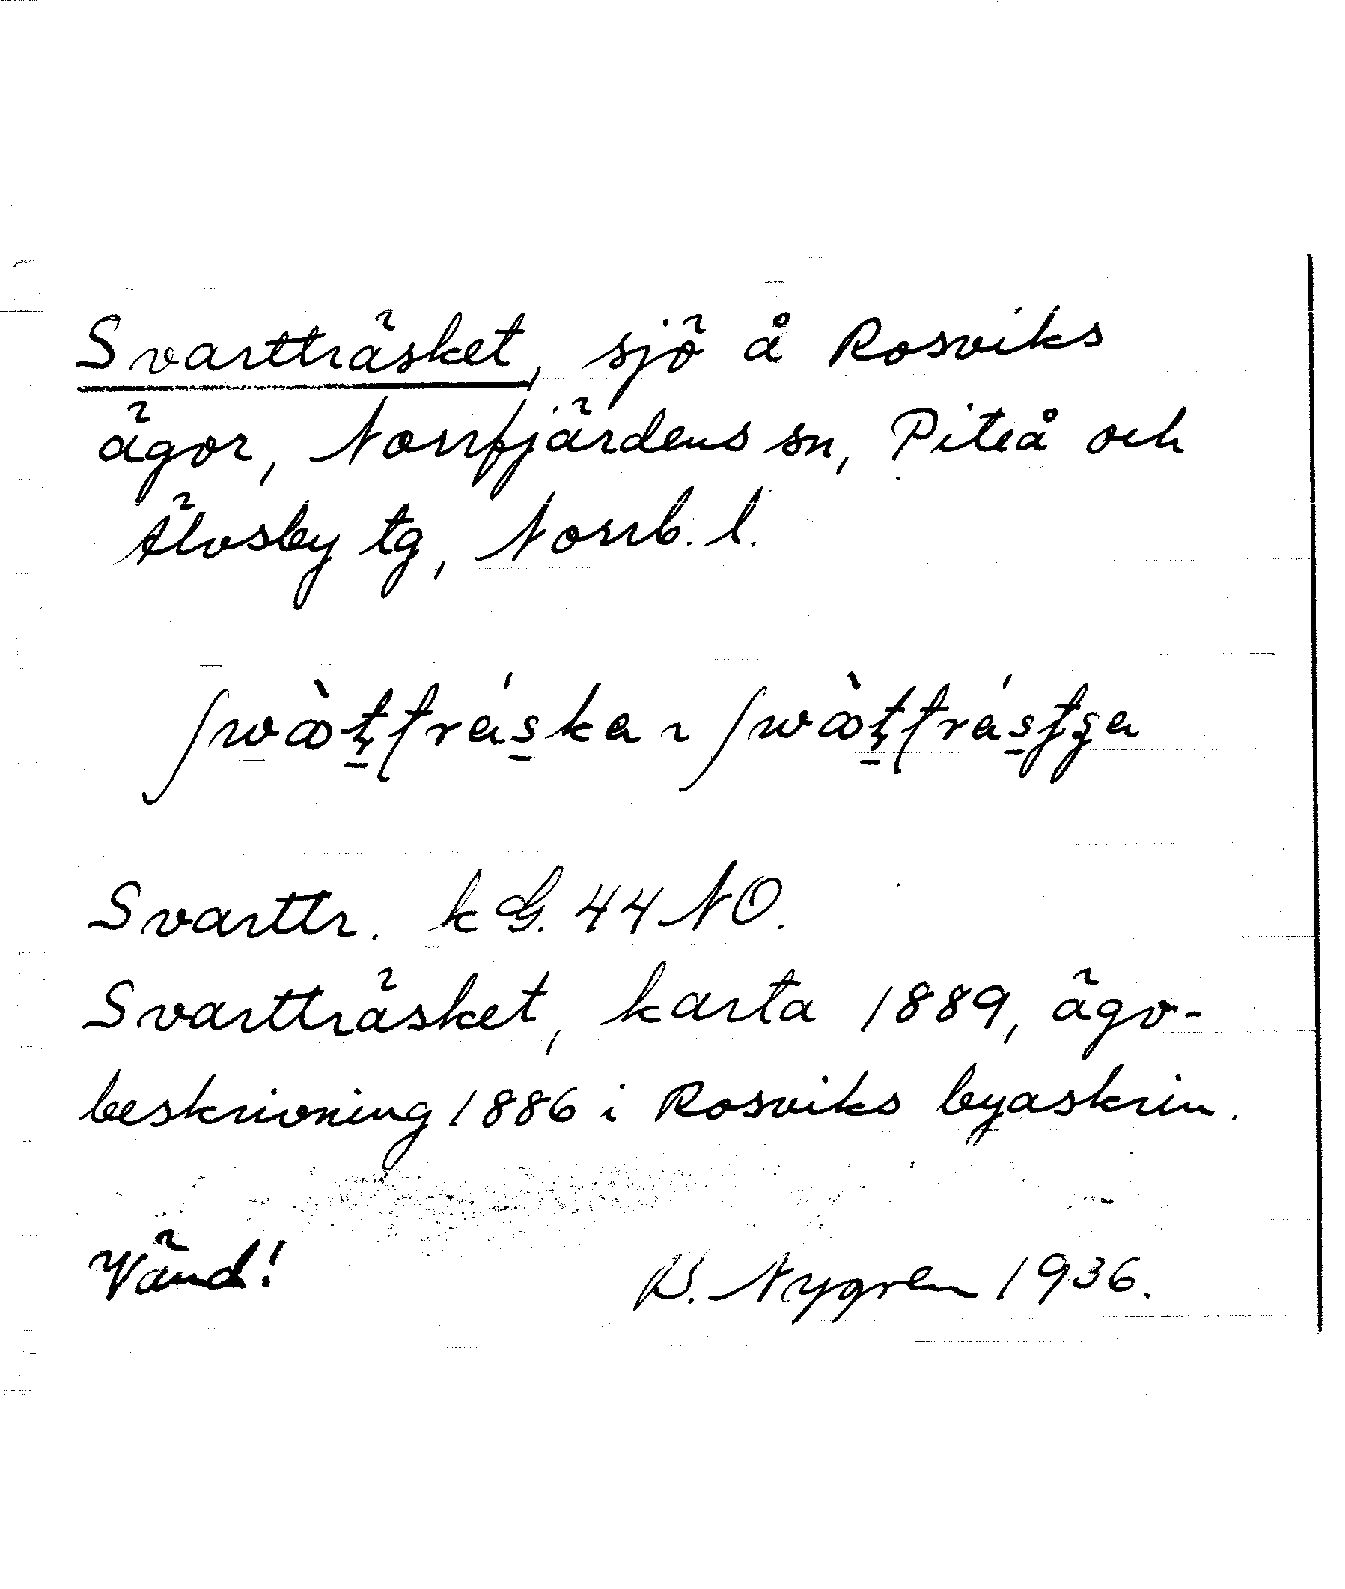 Svartträsket, sjö å Rosviks
ägor, Norrfjärdens sn, Piteå och
Älvsby tg, Norrb. l.
Svarttr. kG. 44 NO.
Svartträsket, karta 1889, ägo-
beskrivning 1886 i Rosviks byaskrin.
Vänd!
Nygren 1936.